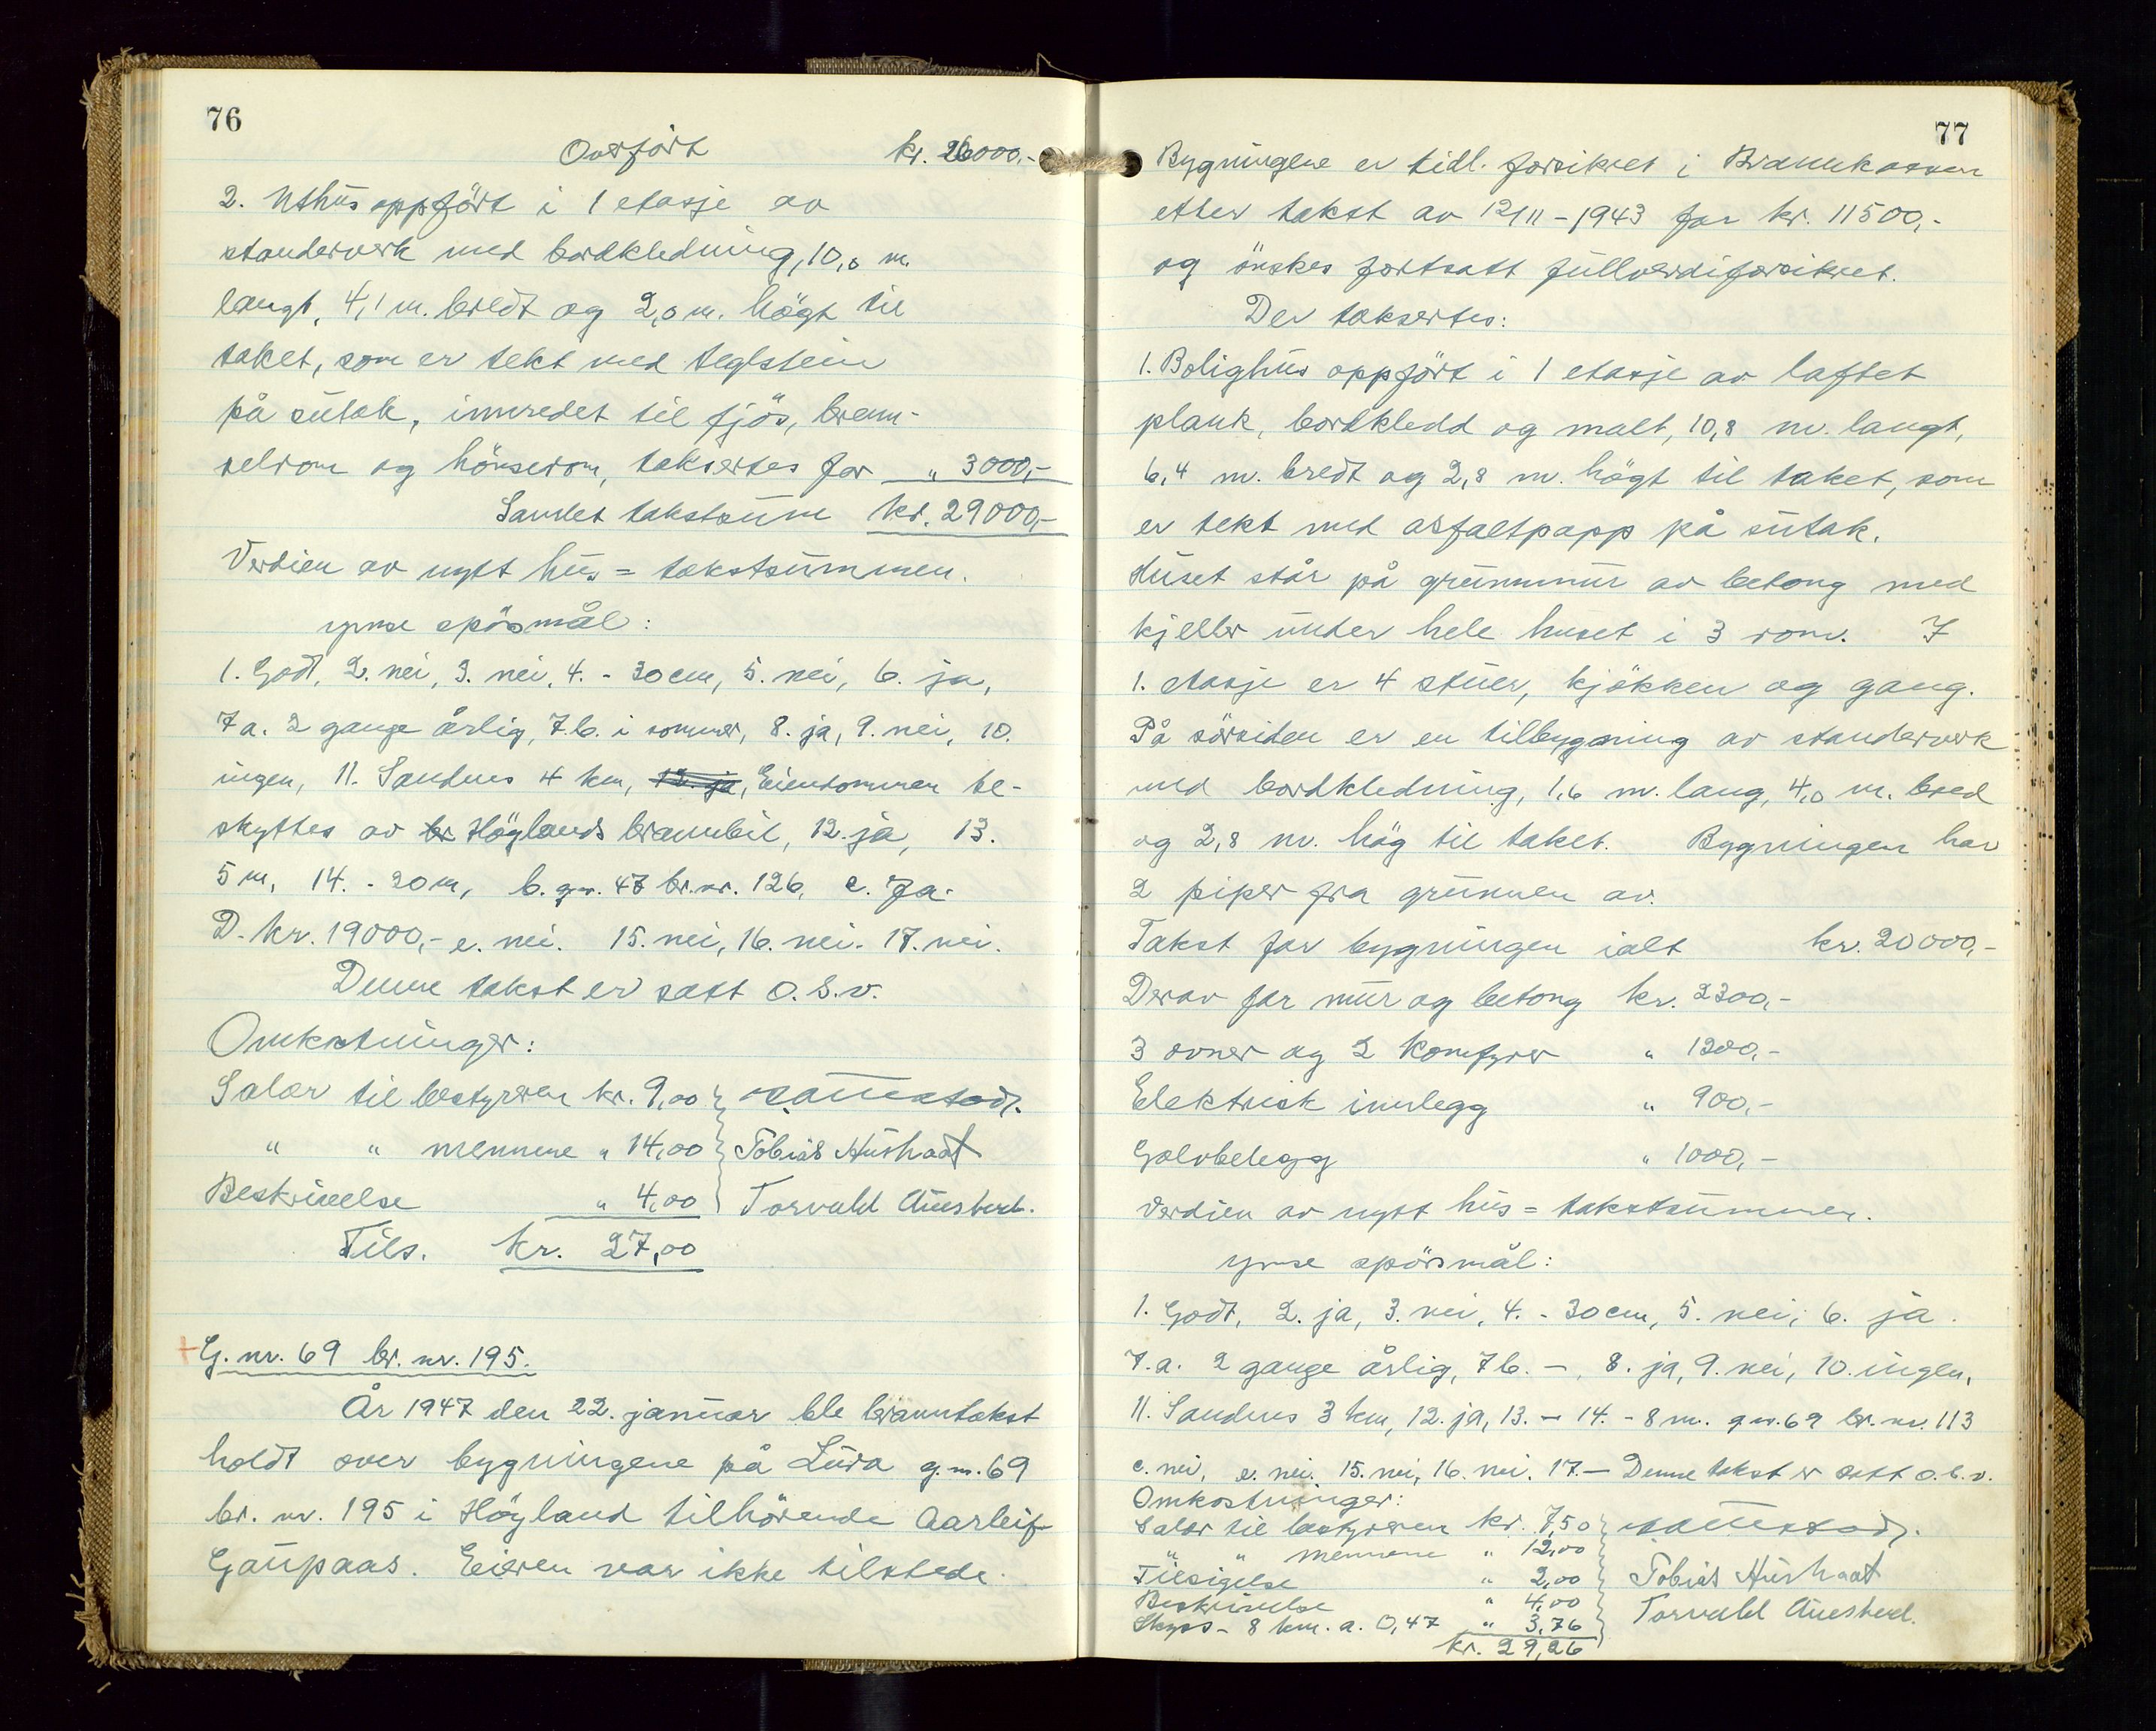 76
Overfört kr. 26000,-
2. Uthus oppfört i 1 etasje av
standerverk med bordkledning, 10,0 m.
langt, 4,1 m. bredt og 2,0 m. högt til
taket, som er tekt med teglstein
på sutak, innredet til fjös, bren-
selrom og hönserom, taksertes for " 3000,-
Samlet takstsum kr. 29000,-
Verdien av nytt hus = takstsummen.
ymse spörsmål:
1. Godt, 2. nei, 3. nei, 4. - 30 cm, 5. nei, 6. ja,
7 a. 2 gange årlig, 7.b. i sommer, 8. ja, 9. nei, 10.
ingen, 11. Sandnes 4 km, 12. ja, Eiendommen be-
skyttes av br Höylands brannbil, 12. ja, 13.
5 m, 14. - 20 m, b. g.nr. 47 br.nr. 126, c. Ja.
D. kr. 19000,- e. nei. 15. nei, 16. nei. 17. nei.
Denne takst er satt o.s.v.
Omkostninger:
Salær til bestyreren kr. 9,00
" " mennene " 14,00 Tobias Aushaat
Beskrivelse " 4,00 Torvald Auestad.
Tils. kr. 27,00
G. nr. 69 br. nr. 195.
År 1947 den 22. januar ble branntakst
holdt over bygningene på Lura g.nr. 69
br. nr. 195 i Höyland tilhörende Aarleif
Gaupaas. Eieren var ikke tilstede.
77
Bygningene er tidl. forsikret i Brannkassen
etter takst av 12/11-1943 for kr. 11500,-
og önskes fortsatt fullverdiforsikret.
Der taksertes:
1. Bolighus oppfört i 1 etasje av laftet
plank, bordkledd og malt, 10,8 m. langt,
6,4 m. bredt og 2,8 m. högt til taket, som
er tekt med asfaltpapp på sutak.
Huset står på grunnmur av betong med
kjeller under hele huset i 3 rom. I
1. etasje er 4 stuer, kjökken og gang.
På sörsiden er en tilbygning av standerverk
med bordkledning, 1,6 m. lang, 4,0 m. bred
og 2,8 m. hög til taket. Bygningen har
2 piper fra grunnen av.
Takst for bygningen ialt kr. 20000,-
Derav for mur og betong kr. 2300,-
3 ovner og 2 komfyrer " 1200,-
Elektrisk innlegg " 900,-
Golvbelegg " 1000,-
Verdien av nytt hus = takstsummen.
ymse spörsmål:
1. Godt, 2. ja, 3. nei, 4. - 30 cm, 5. nei, 6. ja.
7.a. 2 gange årlig, 7 b. -, 8. ja, 9. nei, 10. ingen,
11. Sandnes 3 km, 12. ja, 13. - 14. - 8 m. g.nr. 69 br. nr. 113
c. nei, e. nei. 15. nei, 16. nei. 17. - Denne takst er satt o.s.v.
Omkostninger:
Salær til bestyreren kr. 7,50
" " mennene " 12,00
Tilsigelse " 2,00 Tobias Aushaat
Beskrivelse " 4,00
Skyss - 8 km. a. 0,47 " 3,76 Torvald Auestad.
kr. 29,26